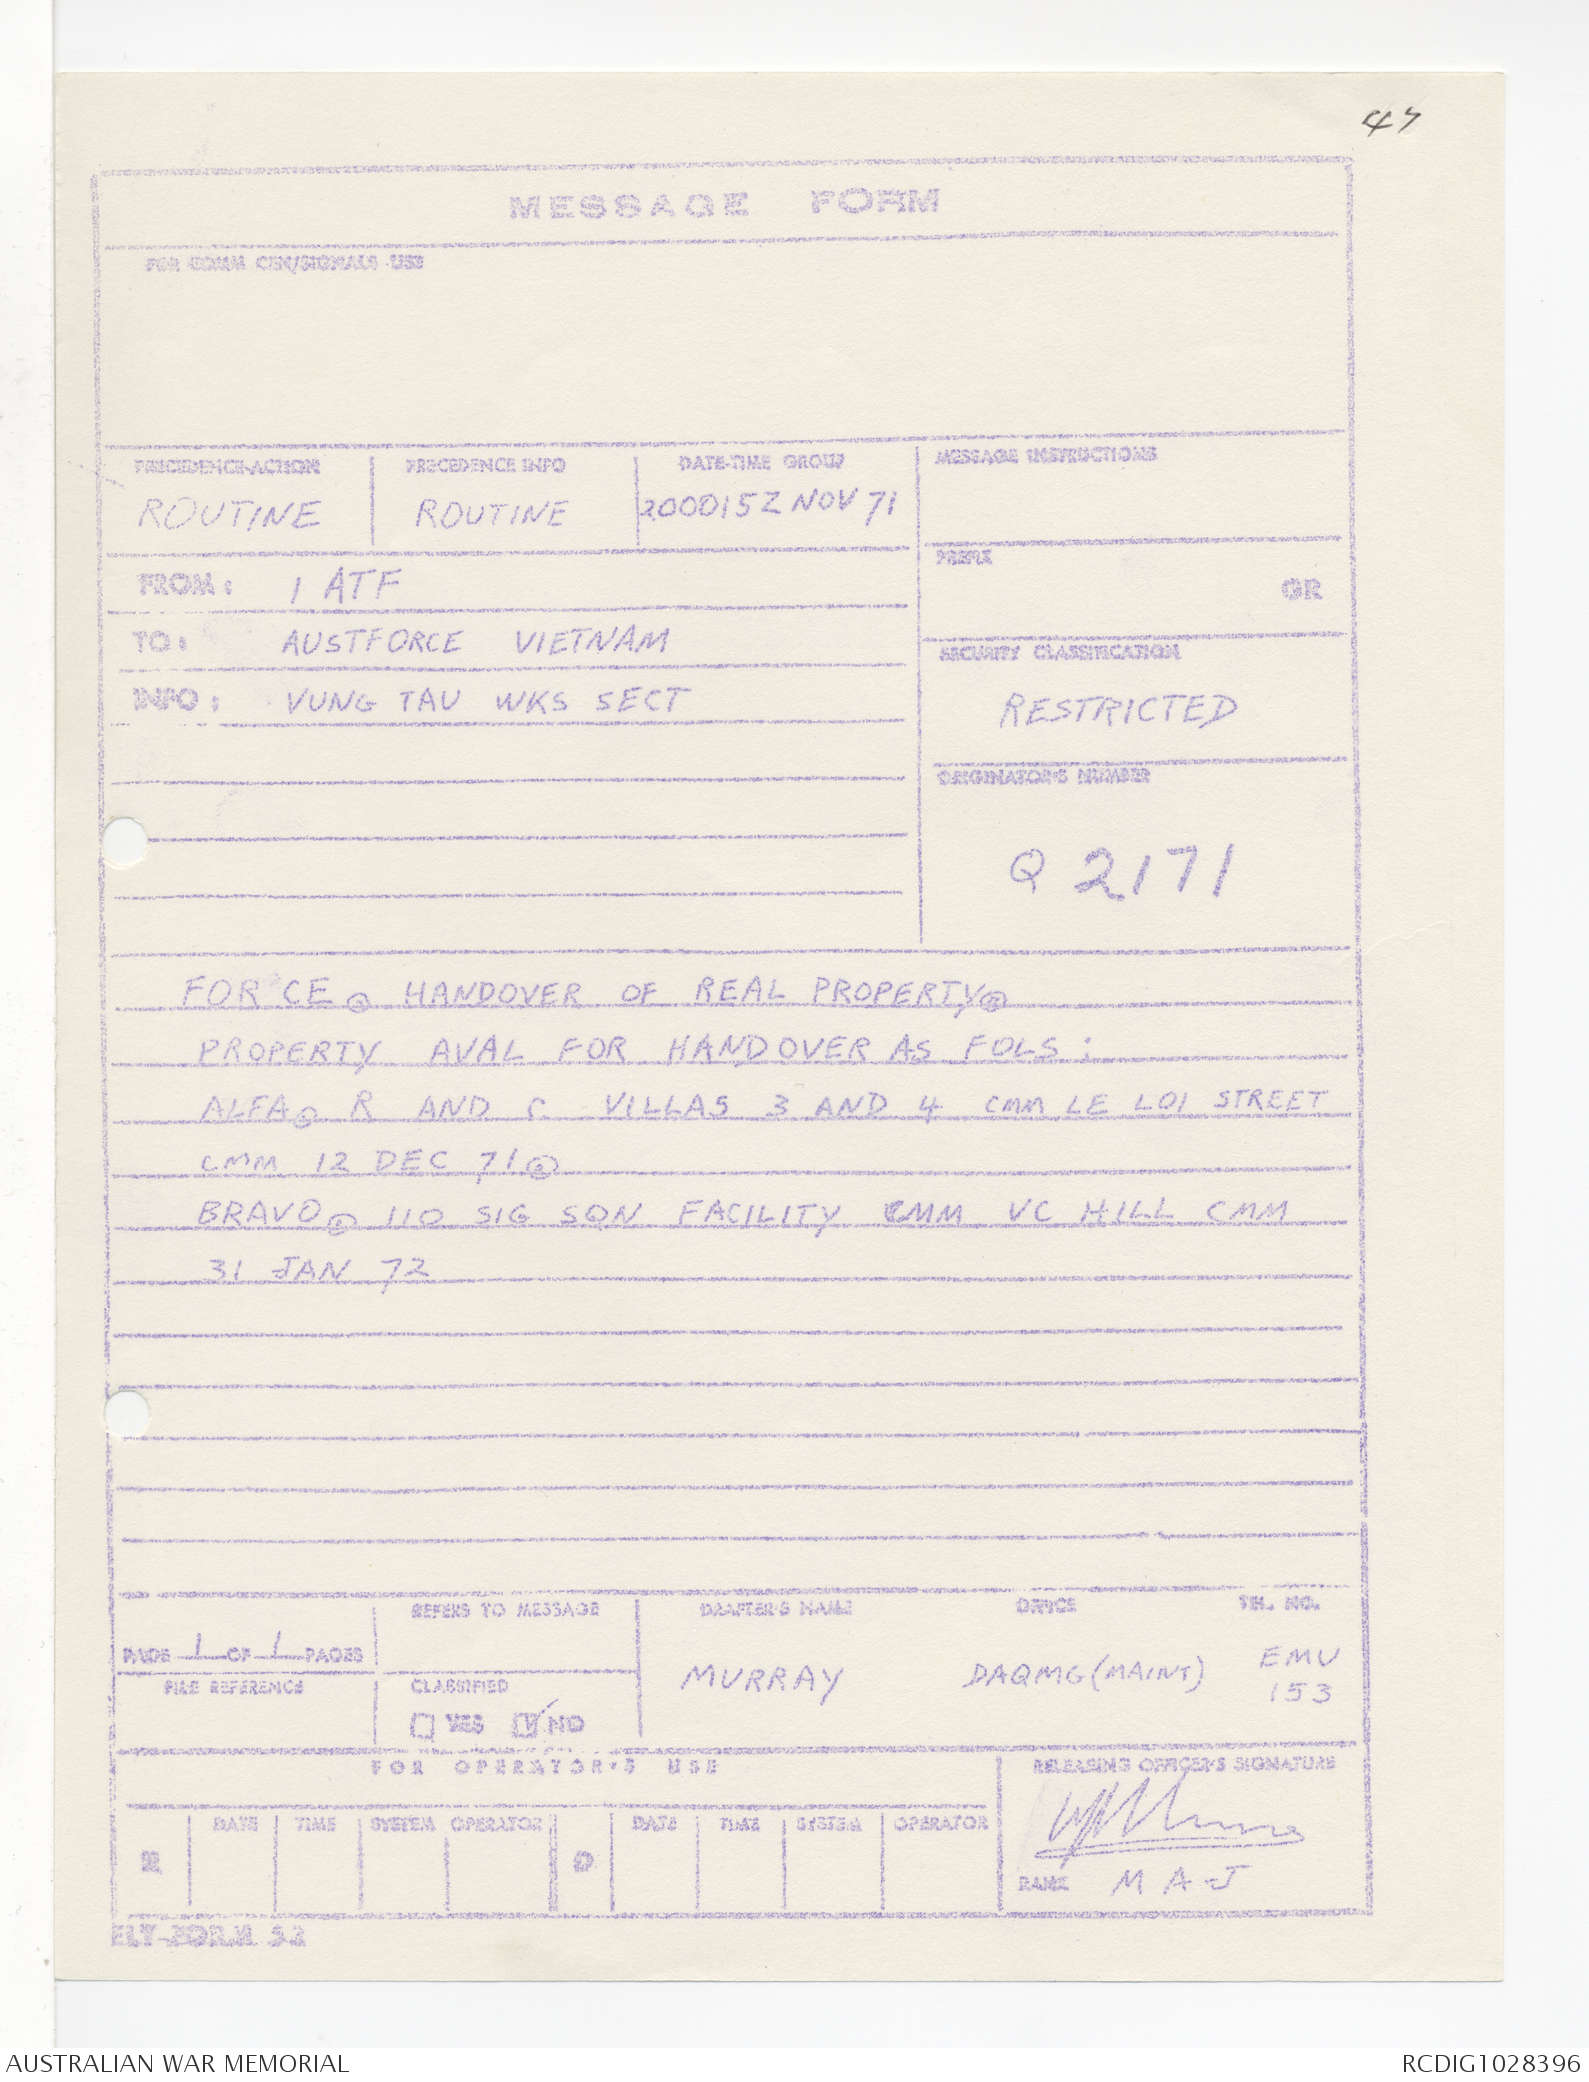 47
MESSAGE FORM
FOR COMM CEN/SIGNALS USE
PRECEDENCE-ACTION PRECEDENCE INFO DATE-TIME GROUP MESSAGE INSTRUCTIONS
ROUTINE ROUTINE 200015Z NOV 71
PREFIX
GR
FROM: 1 ATF
TO: AUSTFORCE VIETNAM
SECURITY CLASSIFICATION
INFO: VUNG TAU WKS SECT
RESTRICTED
ORIGINATOR'S NUMBER
Q 2171
FOR CE . HANDOVER OF REAL PROPERTY .
PROPERTY AVAL FOR HANDOVER AS FOLS :
ALFA . R AND C VILLAS 3 AND 4 CMM LE LOI STREET
CMM 12 DEC 71 .
BRAVO . 110 SIG SQN FACILITY CMM VC HILL CMM
31 JAN 72
REFERS TO MESSAGE DRAFTER'S NAME OFFICE TEL. NO.
PAGE 1 OF 1 PAGES
MURRAY DAQMG (MAINT) EMU
153
FILE REFERENCE CLASSIFIED
YES NO
FOR OPERATOR'S USE RELEASING OFFICER'S SIGNATURE
DATE TIME SYSTEM OPERATOR DATE TIME SYSTEM OPERATOR
R D
RANK MAJ
ELY-FORM 52
AUSTRALIAN WAR MEMORIAL RCDIG1028396